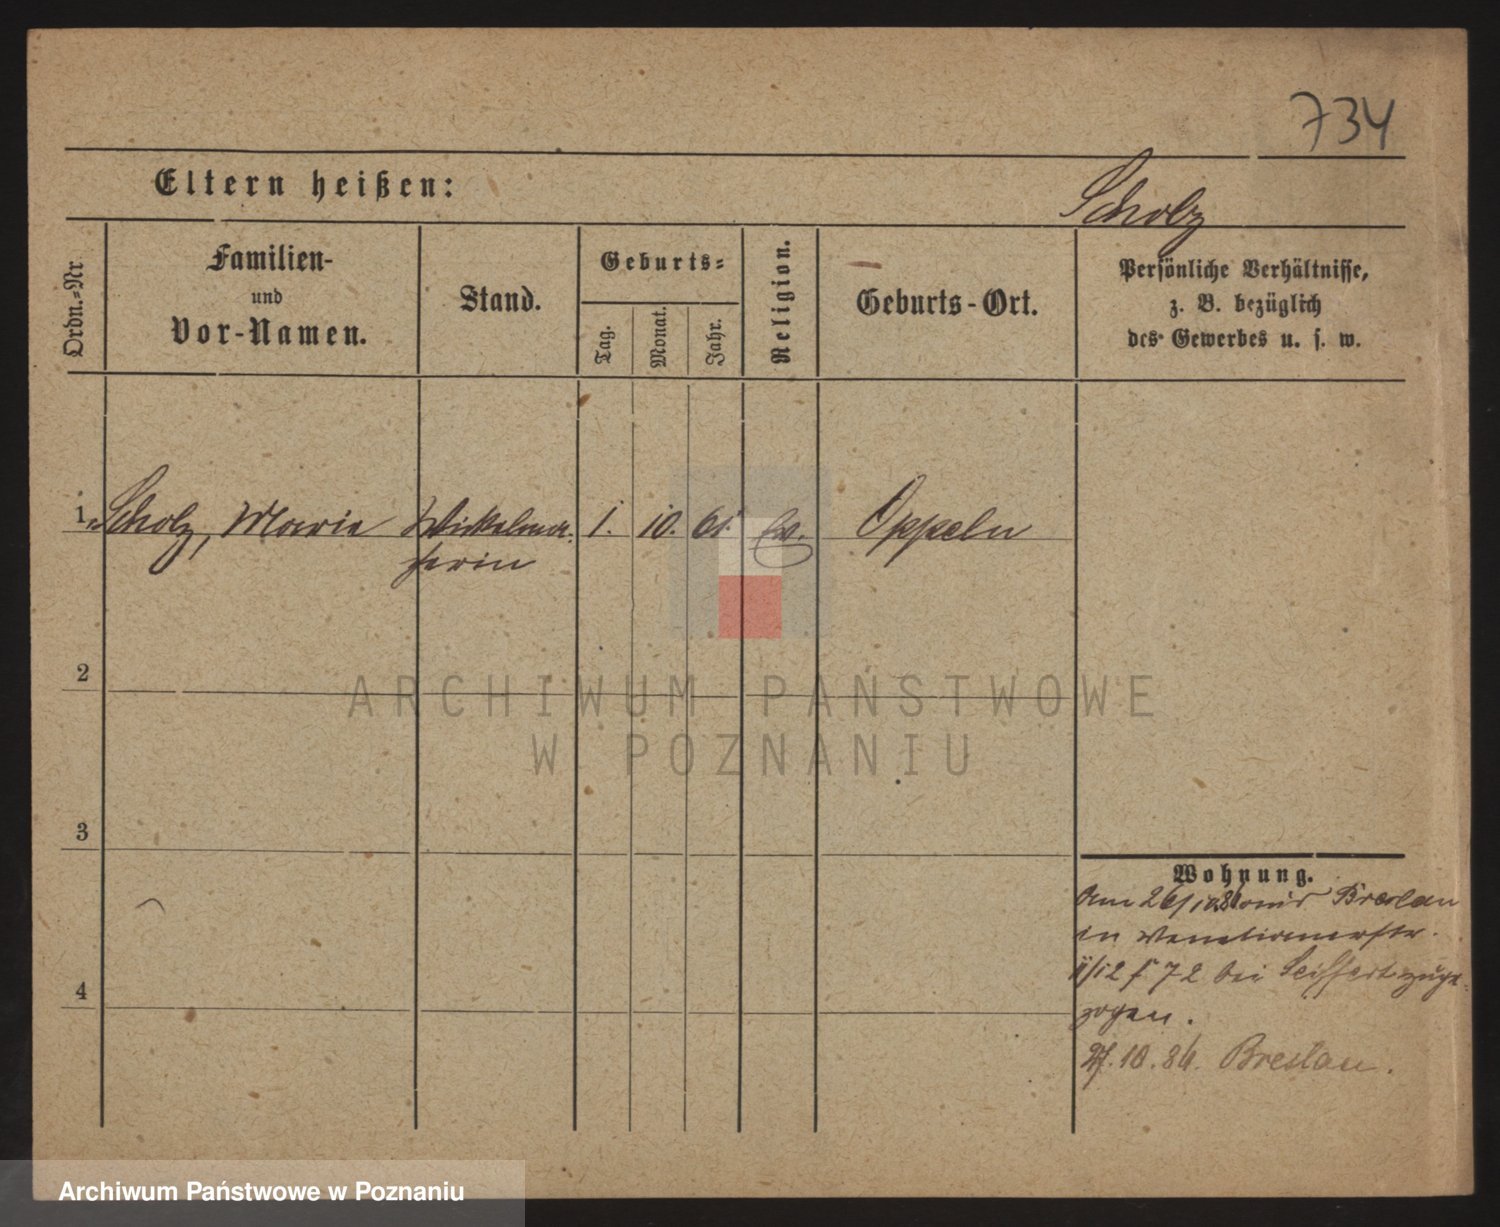 734
Eltern heißen:
Scholz
Ordn.-Nr
Familien-
und
Vor-Namen.
Stand.
Geburts-
Tag.
Monat.
Jahr.
Religion.
Geburts-Ort.
Persönliche Verhältnisse,
z. B. bezüglich
des Gewerbes u. s. w.
1 Scholz, Marie 1. 10. 61. Ev. Oppeln
2
ARCHIWUM PAŃSTWOWE
W POZNANIU
3
4
Wohnung.
Am Breslau
in
72 bei Seiffert zuge-
zogen.
27.10.86. Breslau.
Archiwum Państwowe w Poznaniu